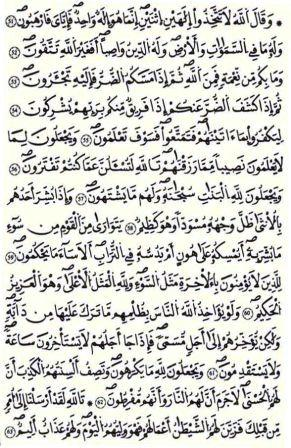 ۞ وَقَالَ ٱللَّهُ لَا تَتَّخِذُوٓا۟ إِلَٰهَيْنِ ٱثْنَيْنِ إِنَّمَا هُوَ إِلَٰهٌ وَٰحِدٌ فَإِيَّٰىَ فَٱرْهَبُونِ ٥١
وَلَهُۥ مَا فِى ٱلسَّمَٰوَٰتِ وَٱلْأَرْضِ وَلَهُ ٱلدِّينُ وَاصِبًا أَفَغَيْرَ ٱللَّهِ تَتَّقُونَ ٥٢
وَمَا بِكُم مِّن نِّعْمَةٍ فَمِنَ ٱللَّهِ ثُمَّ إِذَا مَسَّكُمُ ٱلضُّرُّ فَإِلَيْهِ تَجْـَٔرُونَ ٥٣
ثُمَّ إِذَا كَشَفَ ٱلضُّرَّ عَنكُمْ إِذَا فَرِيقٌ مِّنكُم بِرَبِّهِمْ يُشْرِكُونَ ٥٤
لِيَكْفُرُوا۟ بِمَآ ءَاتَيْنَٰهُمْ فَتَمَتَّعُوا۟ فَسَوْفَ تَعْلَمُونَ ٥٥ وَيَجْعَلُونَ لِمَا
لَا يَعْلَمُونَ نَصِيبًا مِّمَّا رَزَقْنَٰهُمْ تَٱللَّهِ لَتُسْـَٔلُنَّ عَمَّا كُنتُمْ تَفْتَرُونَ ٥٦
وَيَجْعَلُونَ لِلَّهِ ٱلْبَنَٰتِ سُبْحَٰنَهُۥ وَلَهُم مَّا يَشْتَهُونَ ٥٧ وَإِذَا بُشِّرَ أَحَدُهُم
بِٱلْأُنثَىٰ ظَلَّ وَجْهُهُۥ مُسْوَدًّا وَهُوَ كَظِيمٌ ٥٨ يَتَوَٰرَىٰ مِنَ ٱلْقَوْمِ مِن سُوٓءِ
مَا بُشِّرَ بِهِۦٓ أَيُمْسِكُهُۥ عَلَىٰ هُونٍ أَمْ يَدُسُّهُۥ فِى ٱلتُّرَابِ أَلَا سَآءَ مَا يَحْكُمُونَ ٥٩
لِلَّذِينَ لَا يُؤْمِنُونَ بِٱلْءَاخِرَةِ مَثَلُ ٱلسَّوْءِ وَلِلَّهِ ٱلْمَثَلُ ٱلْأَعْلَىٰ وَهُوَ ٱلْعَزِيزُ
ٱلْحَكِيمُ ٦٠ وَلَوْ يُؤَاخِذُ ٱللَّهُ ٱلنَّاسَ بِظُلْمِهِم مَّا تَرَكَ عَلَيْهَا مِن دَآبَّةٍ
وَلَٰكِن يُؤَخِّرُهُمْ إِلَىٰٓ أَجَلٍ مُّسَمًّى فَإِذَا جَآءَ أَجَلُهُمْ لَا يَسْتَـْٔخِرُونَ سَاعَةً
وَلَا يَسْتَقْدِمُونَ ٦١ وَيَجْعَلُونَ لِلَّهِ مَا يَكْرَهُونَ وَتَصِفُ أَلْسِنَتُهُمُ ٱلْكَذِبَ أَنَّ
لَهُمُ ٱلْحُسْنَىٰ لَا جَرَمَ أَنَّ لَهُمُ ٱلنَّارَ وَأَنَّهُم مُّفْرَطُونَ ٦٢ تَٱللَّهِ لَقَدْ أَرْسَلْنَآ إِلَىٰٓ أُمَمٍ
مِّن قَبْلِكَ فَزَيَّنَ لَهُمُ ٱلشَّيْطَٰنُ أَعْمَٰلَهُمْ فَهُوَ وَلِيُّهُمُ ٱلْيَوْمَ وَلَهُمْ عَذَابٌ أَلِيمٌ ٦٣